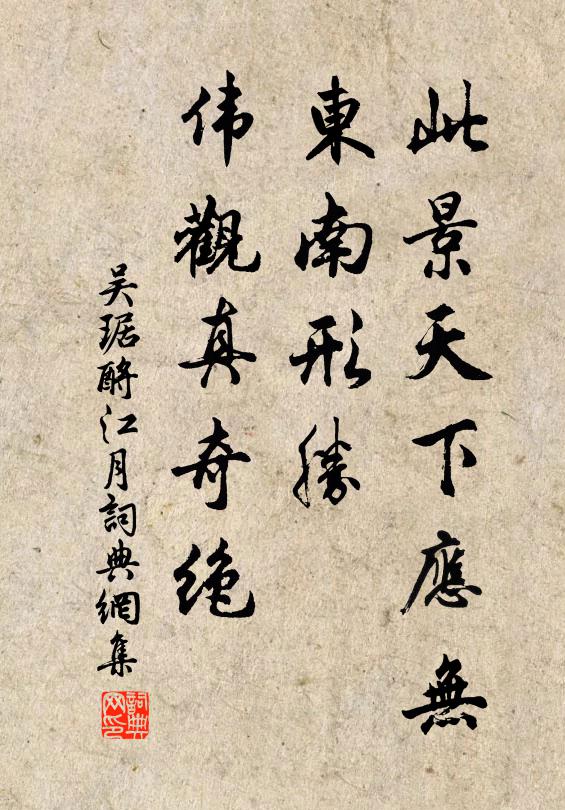 此景天下應無
東南形勝
伟觀真奇绝
吴琚酹江月詞典網集
詞典网印